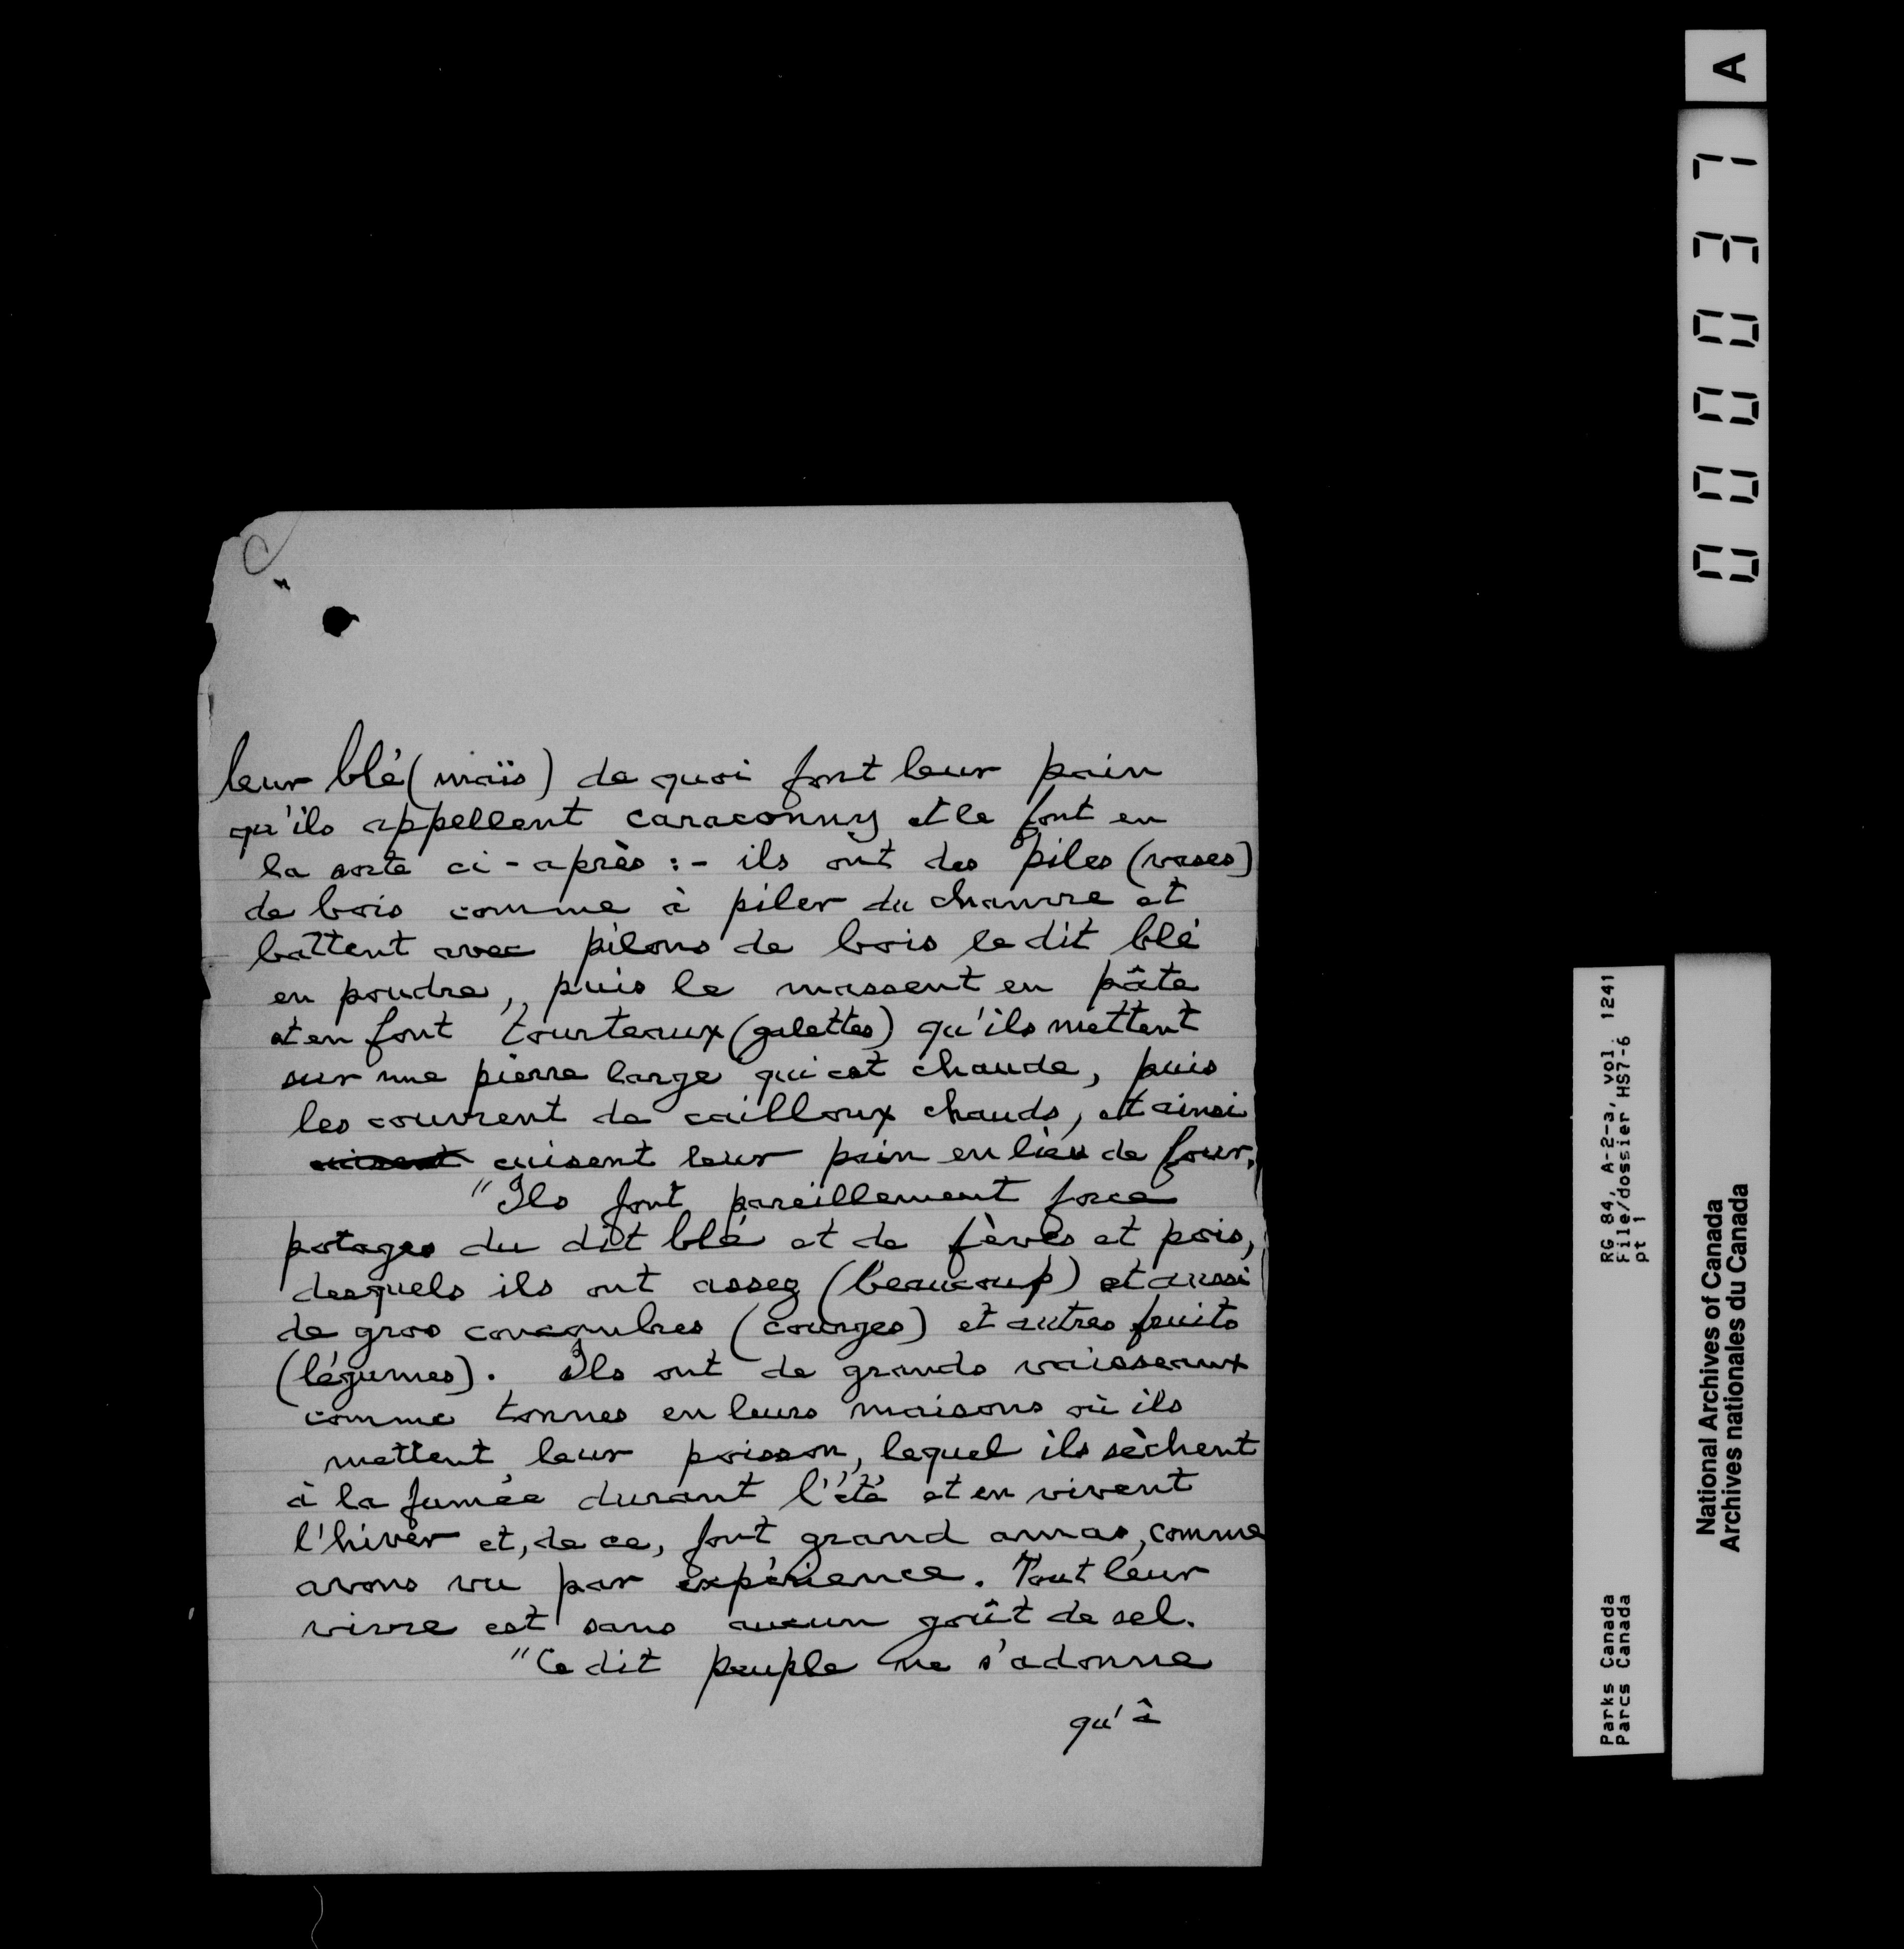 leur blé (maïs) de quoi font leur pain
qu'ils appellent caraconny et le font en
la sorte ci-après :- ils ont des piles (vases)
de bois comme à piler du chanvre et
battent avec pilons de bois le dit blé
en poudre, puis le massent en pâte
et en font tourteaux (galettes) qu'ils mettent
sur une pierre large qui est chaude, puis
les couvrent de cailloux chauds, et ainsi
cuisent leur pain en lieu de four.
"Ils font pareillement force
potages du dit blé et de fèves et pois,
desquels ils ont assez (beaucoup) et aussi
de gros concombres (courges) et autres fruits
(légumes). Ils ont de grands vaisseaux
comme tonnes en leurs maisons où ils
mettent leur poisson, lequel ils sèchent
à la fumée durant l'été et en vivent
l'hiver et, de ce, font grand amas, comme
avons vu par expérience. Tout leur
vivre est sans aucun goût de sel.
"Ce dit peuple ne s'adonne
qu'à
A
000031
RG 84, A-2-a, vol. 1241
File/dossier HS7-6
pt 1
Parks Canada
Parcs Canada
National Archives of Canada
Archives nationales du Canada